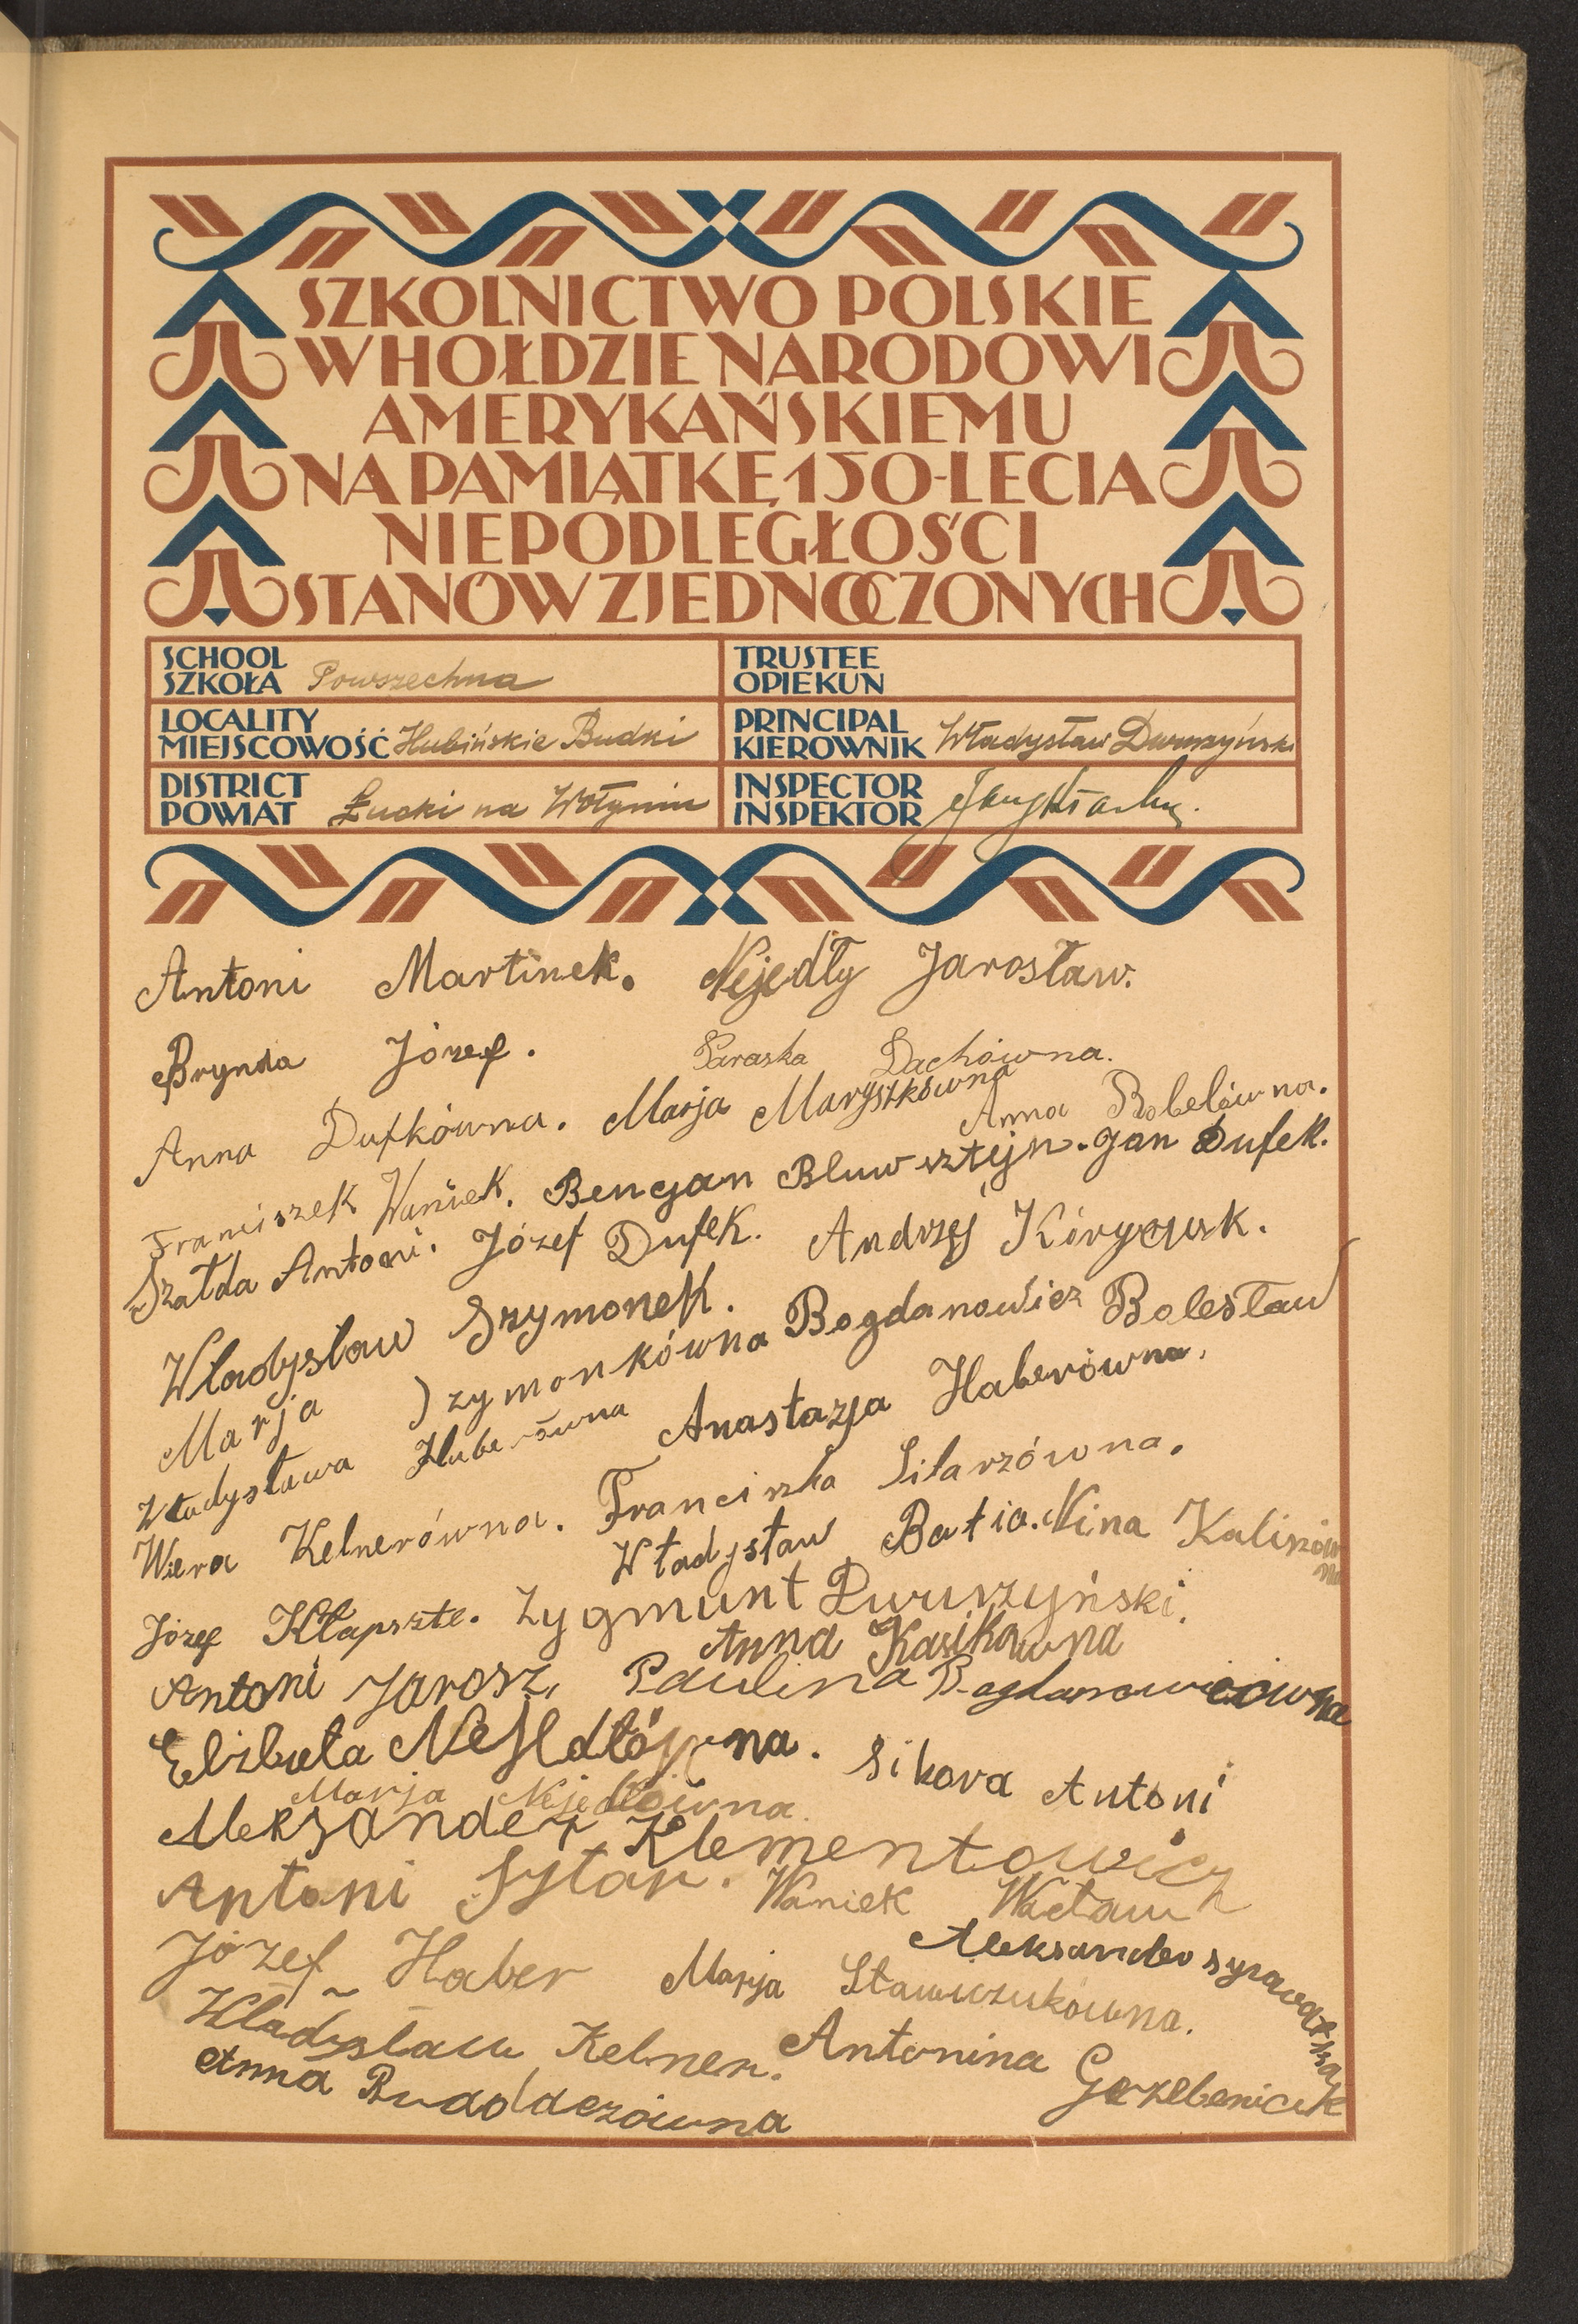 SZKOLNICTWO POLSKIE
W HOŁDZIE NARODOWI
AMERYKAŃSKIEMU
NA PAMIĄTKĘ 150-LECIA
NIEPODLEGŁOŚCI
STANÓW ZJEDNOCZONYCH
SCHOOL
SZKOŁA Powszechna
TRUSTEE
OPIEKUN
LOCALITY
MIEJSCOWOŚĆ Hubińskie Budki
PRINCIPAL
KIEROWNIK Władysław
DISTRICT
POWIAT Łucki na Wołyniu
INSPECTOR
INSPEKTOR
Antoni Martinek. Nejedły Jarosław.
Brynda Józef. Paraska Dachówna.
Anna Dufkówna. Marja Maryszkówna
Anna Bobelówna.
Franciszek Waniek. Bengan Bluwsztejn. Jan Dufek.
Szałda Antoni. Józef Dufek. Andrzej
Władysław Szymonek.
Marja Szymonkówna Bogdanowicz Bolesław
Władysława Huberówna Anastazja Haberówna.
Wiera Kelnerówna. Franciszka Silarzówna.
Władysław Batio. Nina
Józef Kłapszte. Zygmunt
Anna Kasikówna
Antoni Jarosz, Paulina Bogdanowiczówna
Elżbieta Sikora Antoni
Marja Nejedłówna.
Aleksander Klementowicz
Antoni Waniek Wacław
Józef Haber Marja
Aleksander
Władysław Kelner. Antonina
Anna